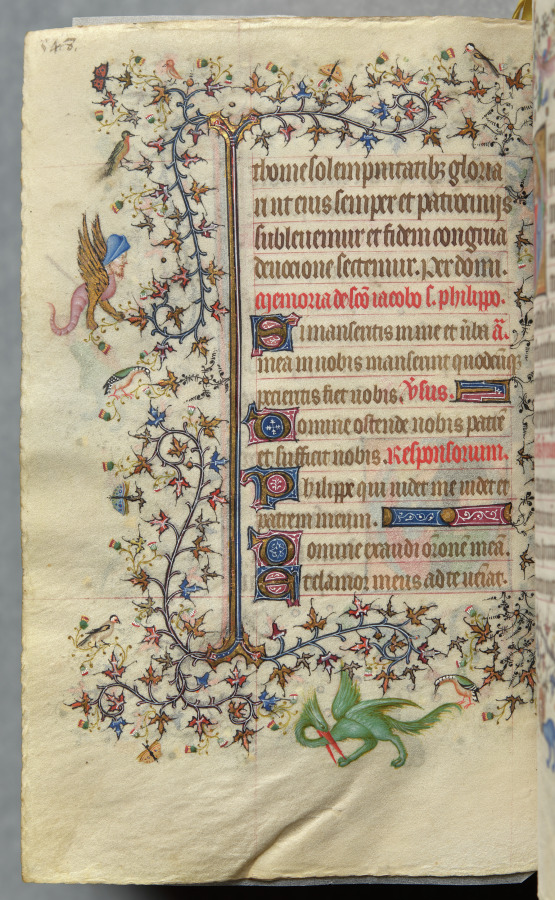 548.
thome solempnitatibꝫ gloria
ri ut eius semper et patrocinijs
subleuemur et fidem congrua
deuocione sectemur. Per domi.
Memoria de scō iacobo s. philippo.
Si manseritis in me et ūba a᷈.
mea in uobis manserint quodcūqꝫ
pecieritis fiet uobis. V̄sus.
Domine ostende nobis patrē
et sufficit nobis. Responsorium.
Philippe qui uidet me uidet et
patrem meum.
Domine exaudi oronē meā.
Et clamor meus ad te ueīat.